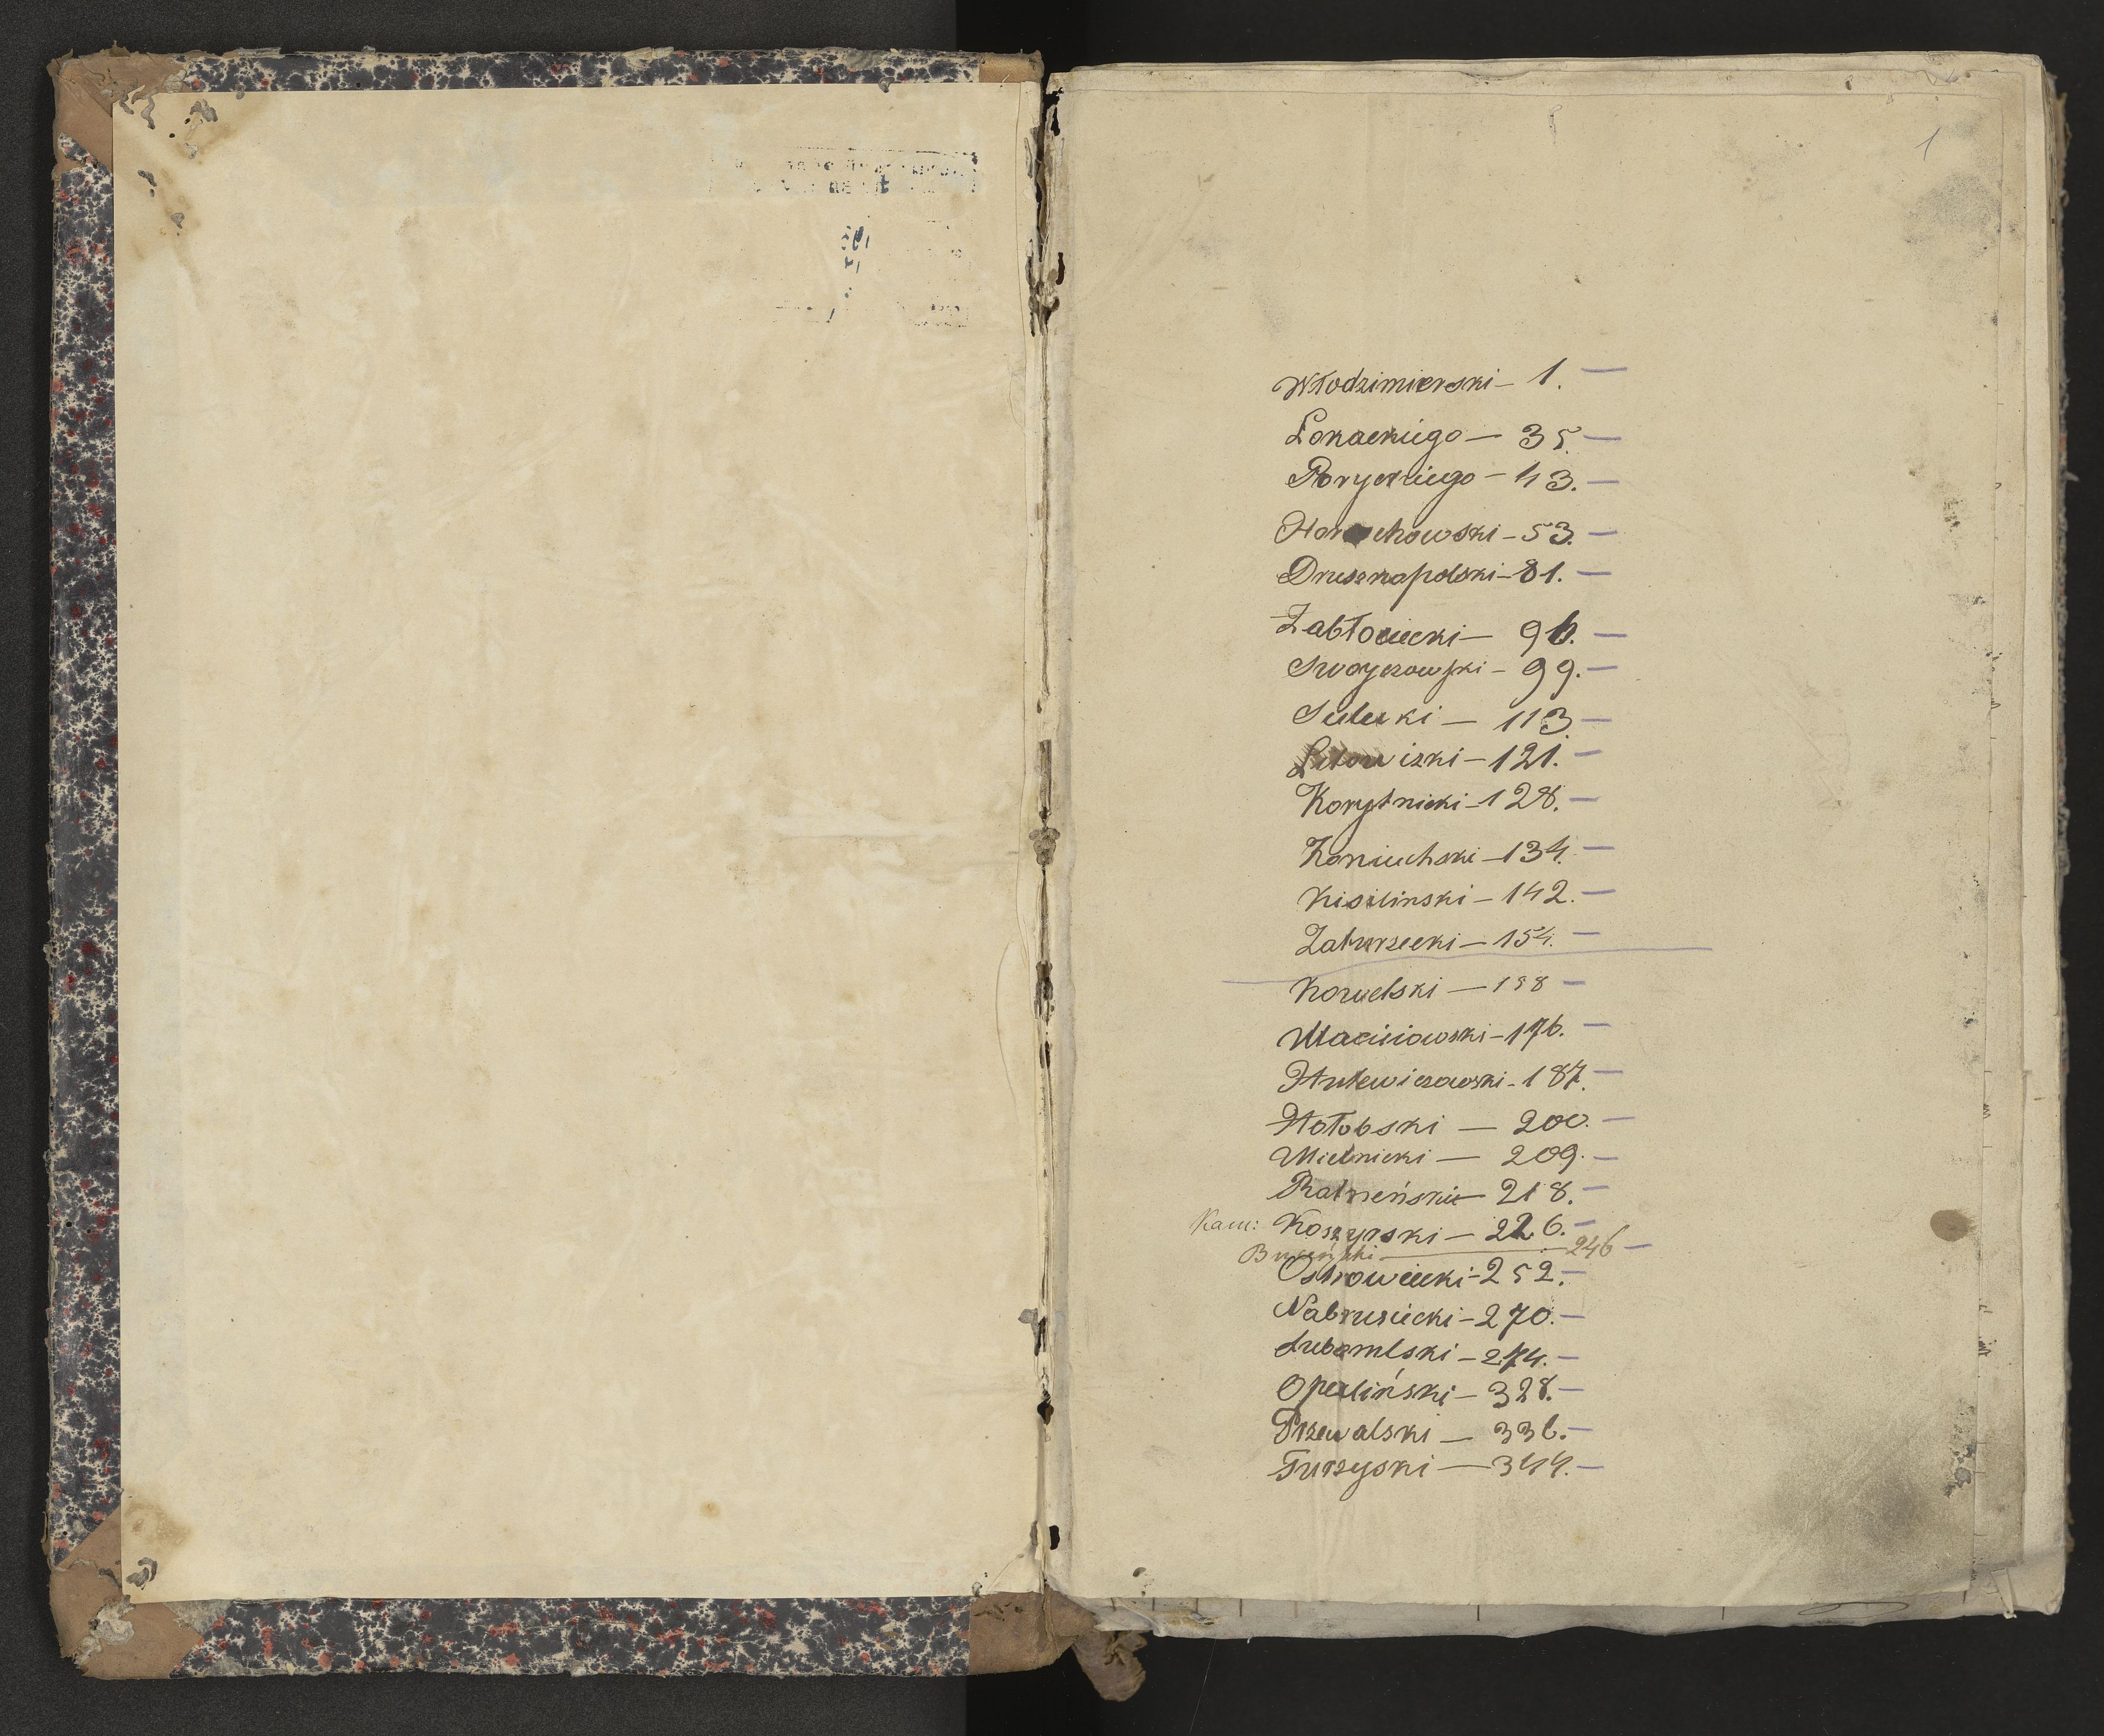 1
Włodzimierski — 1. —
Łokackiego — 35. —
Poryckiego — 43. —
Horochowski — 53. —
Druszkopolski — 81. —
Zabłociecki — 96. —
Swojczowski — 99. —
Sielecki — 113. —
Litowiski — 121. —
Korytnicki — 128. —
Koniuchski — 134. —
Kisilinski — 142. —
Zaturzecki — 154. —
Kowelski — 158 —
Maciiowski — 176. —
Hulewiczowski — 187. —
Hołobski — 200. —
Mielnicki — 209. —
Ratneński — 218. —
Kam: Koszyrski — 226. —
246 —
Ostrowiecki — 252. —
Nabrusiecki — 270. —
Lubomlski — 274. —
Opaliński — 328. —
Przewalski — 336. —
Turzyski — 344. —